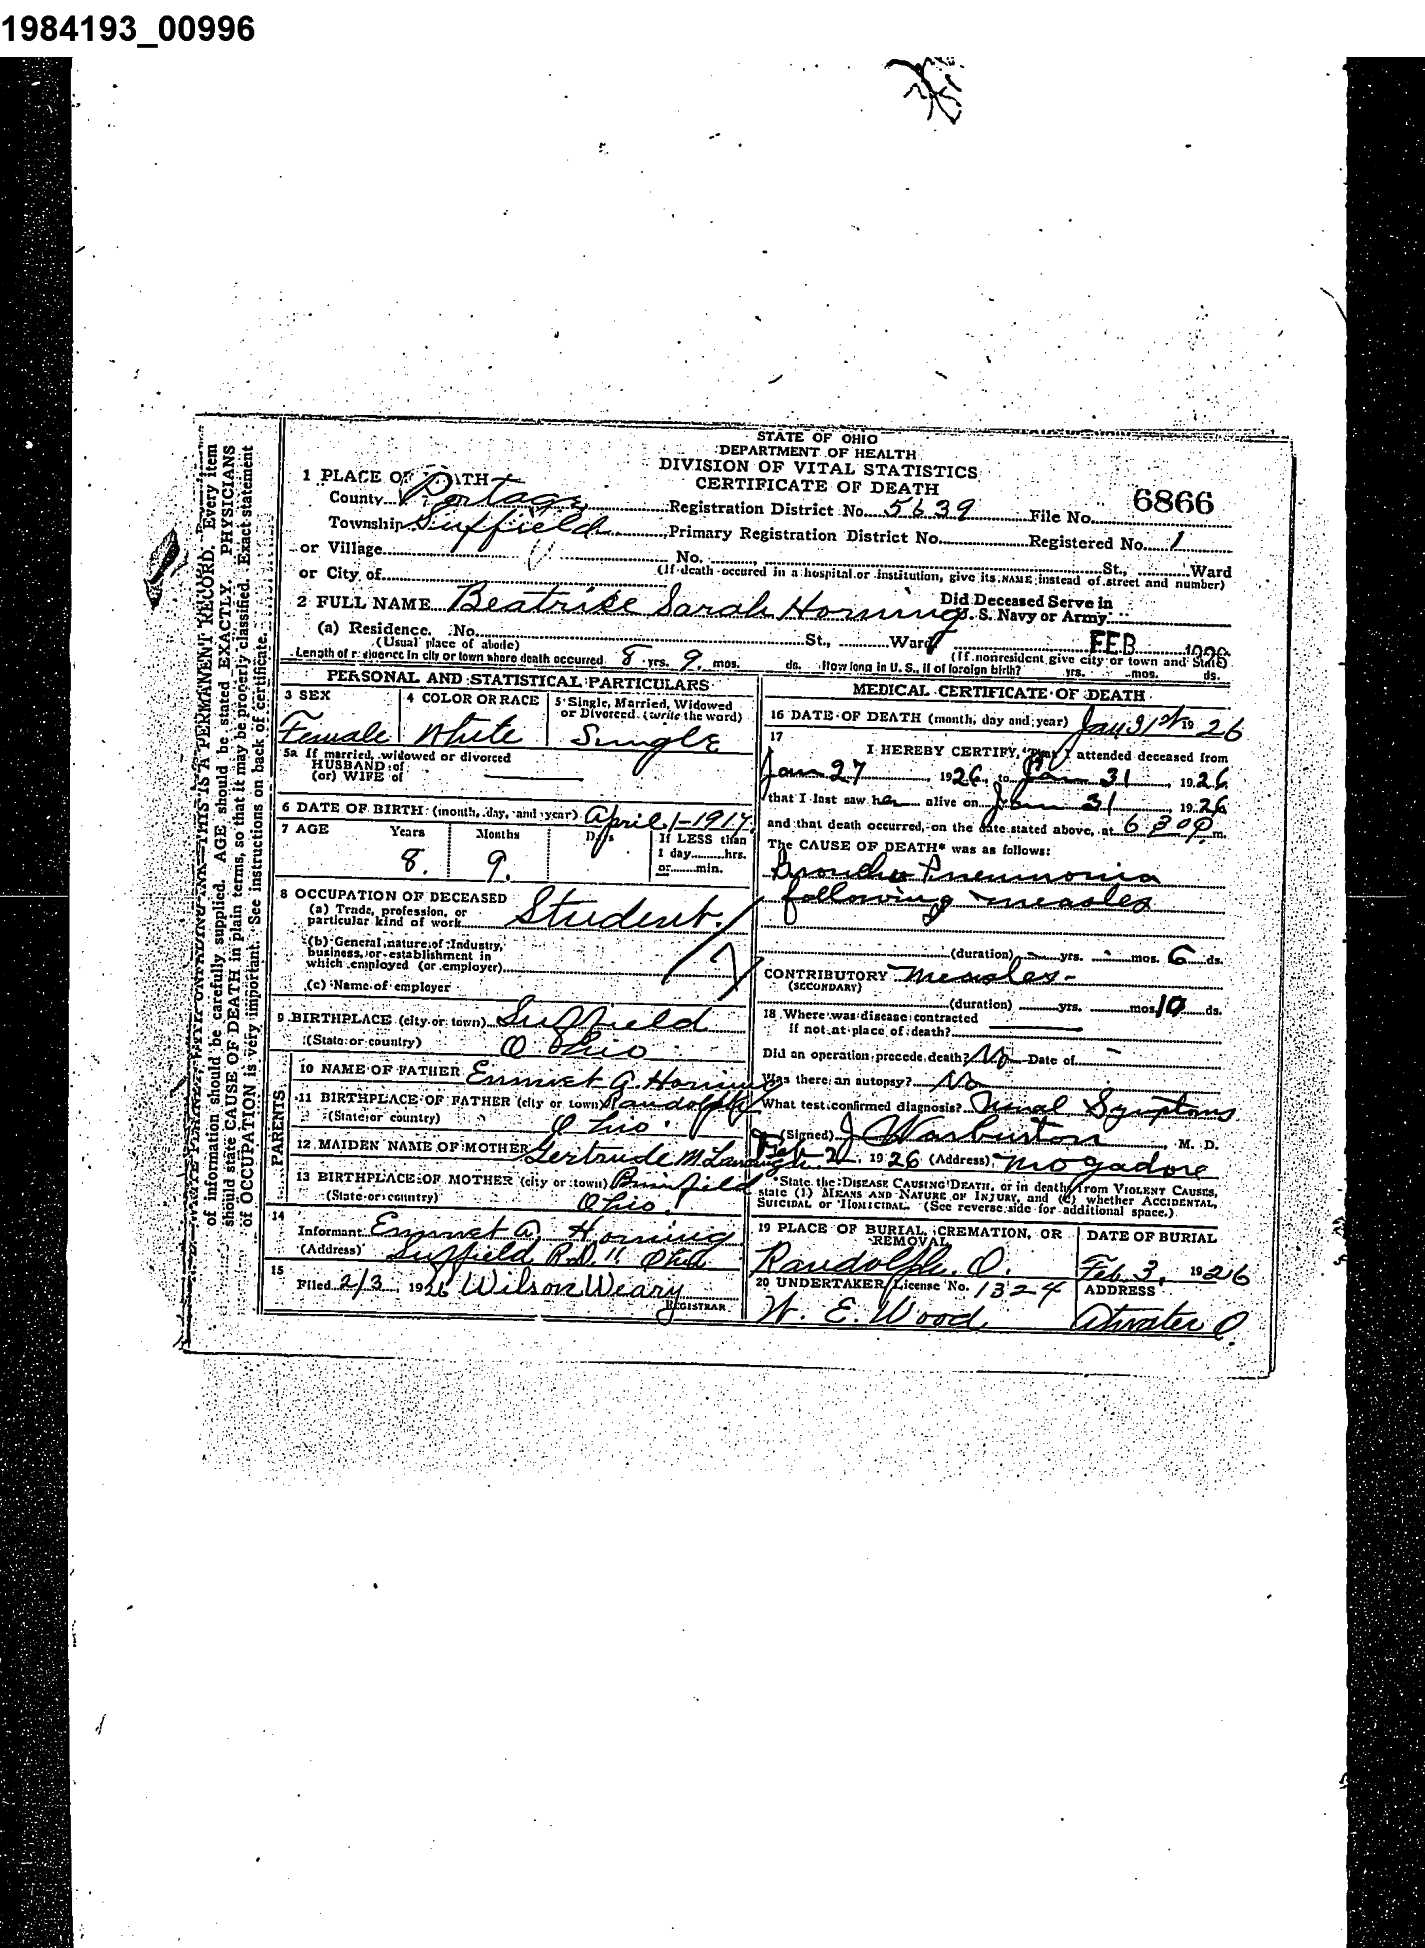 1984193_00996
STATE OF OHIO
DEPARTMENT OF HEALTH
DIVISION OF VITAL STATISTICS
CERTIFICATE OF DEATH
1 PLACE OF DEATH
County Portage
Registration District No. 5639 File No. 6866
Township Suffield Primary Registration District No. Registered No. 1
or Village No. St., Ward
or City of (If death occured in a hospital or institution, give its NAME instead of street and number)
2 FULL NAME Beatrice Sarah Horning Did Deceased Serve in
U. S. Navy or Army
(a) Residence. No. St., Ward FEB 1926
(Usual place of abode) (If nonresident give city or town and State)
Length of residence in city or town where death occurred 8 yrs. 9 mos. ds. How long in U. S., if of foreign birth? yrs. mos. ds.
PERSONAL AND STATISTICAL PARTICULARS
3 SEX
Female
4 COLOR OR RACE
White
5 Single, Married, Widowed
or Divorced. (write the word)
Single
5a If married, widowed or divorced
HUSBAND of
(or) WIFE of
6 DATE OF BIRTH (month, day, and year) April 1-1917
7 AGE Years Months Days If LESS than
1 day hrs.
or min.
8. 9.
8 OCCUPATION OF DECEASED
(a) Trade, profession, or
particular kind of work Student.
(b) General nature of Industry,
business, or establishment in
which employed (or employer)
(c) Name of employer
9 BIRTHPLACE (city or town) Suffield
(State or country) Ohio
PARENTS
10 NAME OF FATHER Emmet A. Horning
11 BIRTHPLACE OF FATHER (city or town) Randolph
(State or country) Ohio.
12 MAIDEN NAME OF MOTHER Gertrude M.
13 BIRTHPLACE OF MOTHER (city or town) Brimfield
(State or country) Ohio.
14
Informant Emmet A. Horning
(Address) Suffield R.D. 11 Ohio
15
Filed 2/3, 1926 Wilson Weary
REGISTRAR
MEDICAL CERTIFICATE OF DEATH
16 DATE OF DEATH (month, day and year) Jan 31st 1926
17
I HEREBY CERTIFY, That I attended deceased from
Jan 27, 1926, to Jan 31, 1926
that I last saw her alive on Jan 31, 1926
and that death occurred, on the date stated above, at 6 30 P. m.
The CAUSE OF DEATH* was as follows:
Broncho Pneumonia
following measles
(duration) yrs. mos. 6 ds.
CONTRIBUTORY Measles
(SECONDARY)
(duration) yrs. mos. 10 ds.
18 Where was disease contracted
if not at place of death?
Did an operation precede death? No Date of
Was there an autopsy? No
What test confirmed diagnosis? Usual Symptoms
(Signed) J Warburton, M. D.
Feb 2, 1926 (Address) Mogadore
*State the DISEASE CAUSING DEATH, or in deaths from VIOLENT CAUSES,
state (1) MEANS AND NATURE OF INJURY, and (2) whether ACCIDENTAL,
SUICIDAL or HOMICIDAL. (See reverse side for additional space.)
19 PLACE OF BURIAL, CREMATION, OR
REMOVAL
Randolph. O.
DATE OF BURIAL
Feb. 3, 1926
20 UNDERTAKER, License No. 1324
W. E. Wood
ADDRESS
Atwater O.
THIS IS A PERMANENT RECORD. Every item
of information should be carefully supplied. AGE should be stated EXACTLY. PHYSICIANS
should state CAUSE OF DEATH in plain terms, so that it may be properly classified. Exact statement
of OCCUPATION is very important. See instructions on back of certificate.